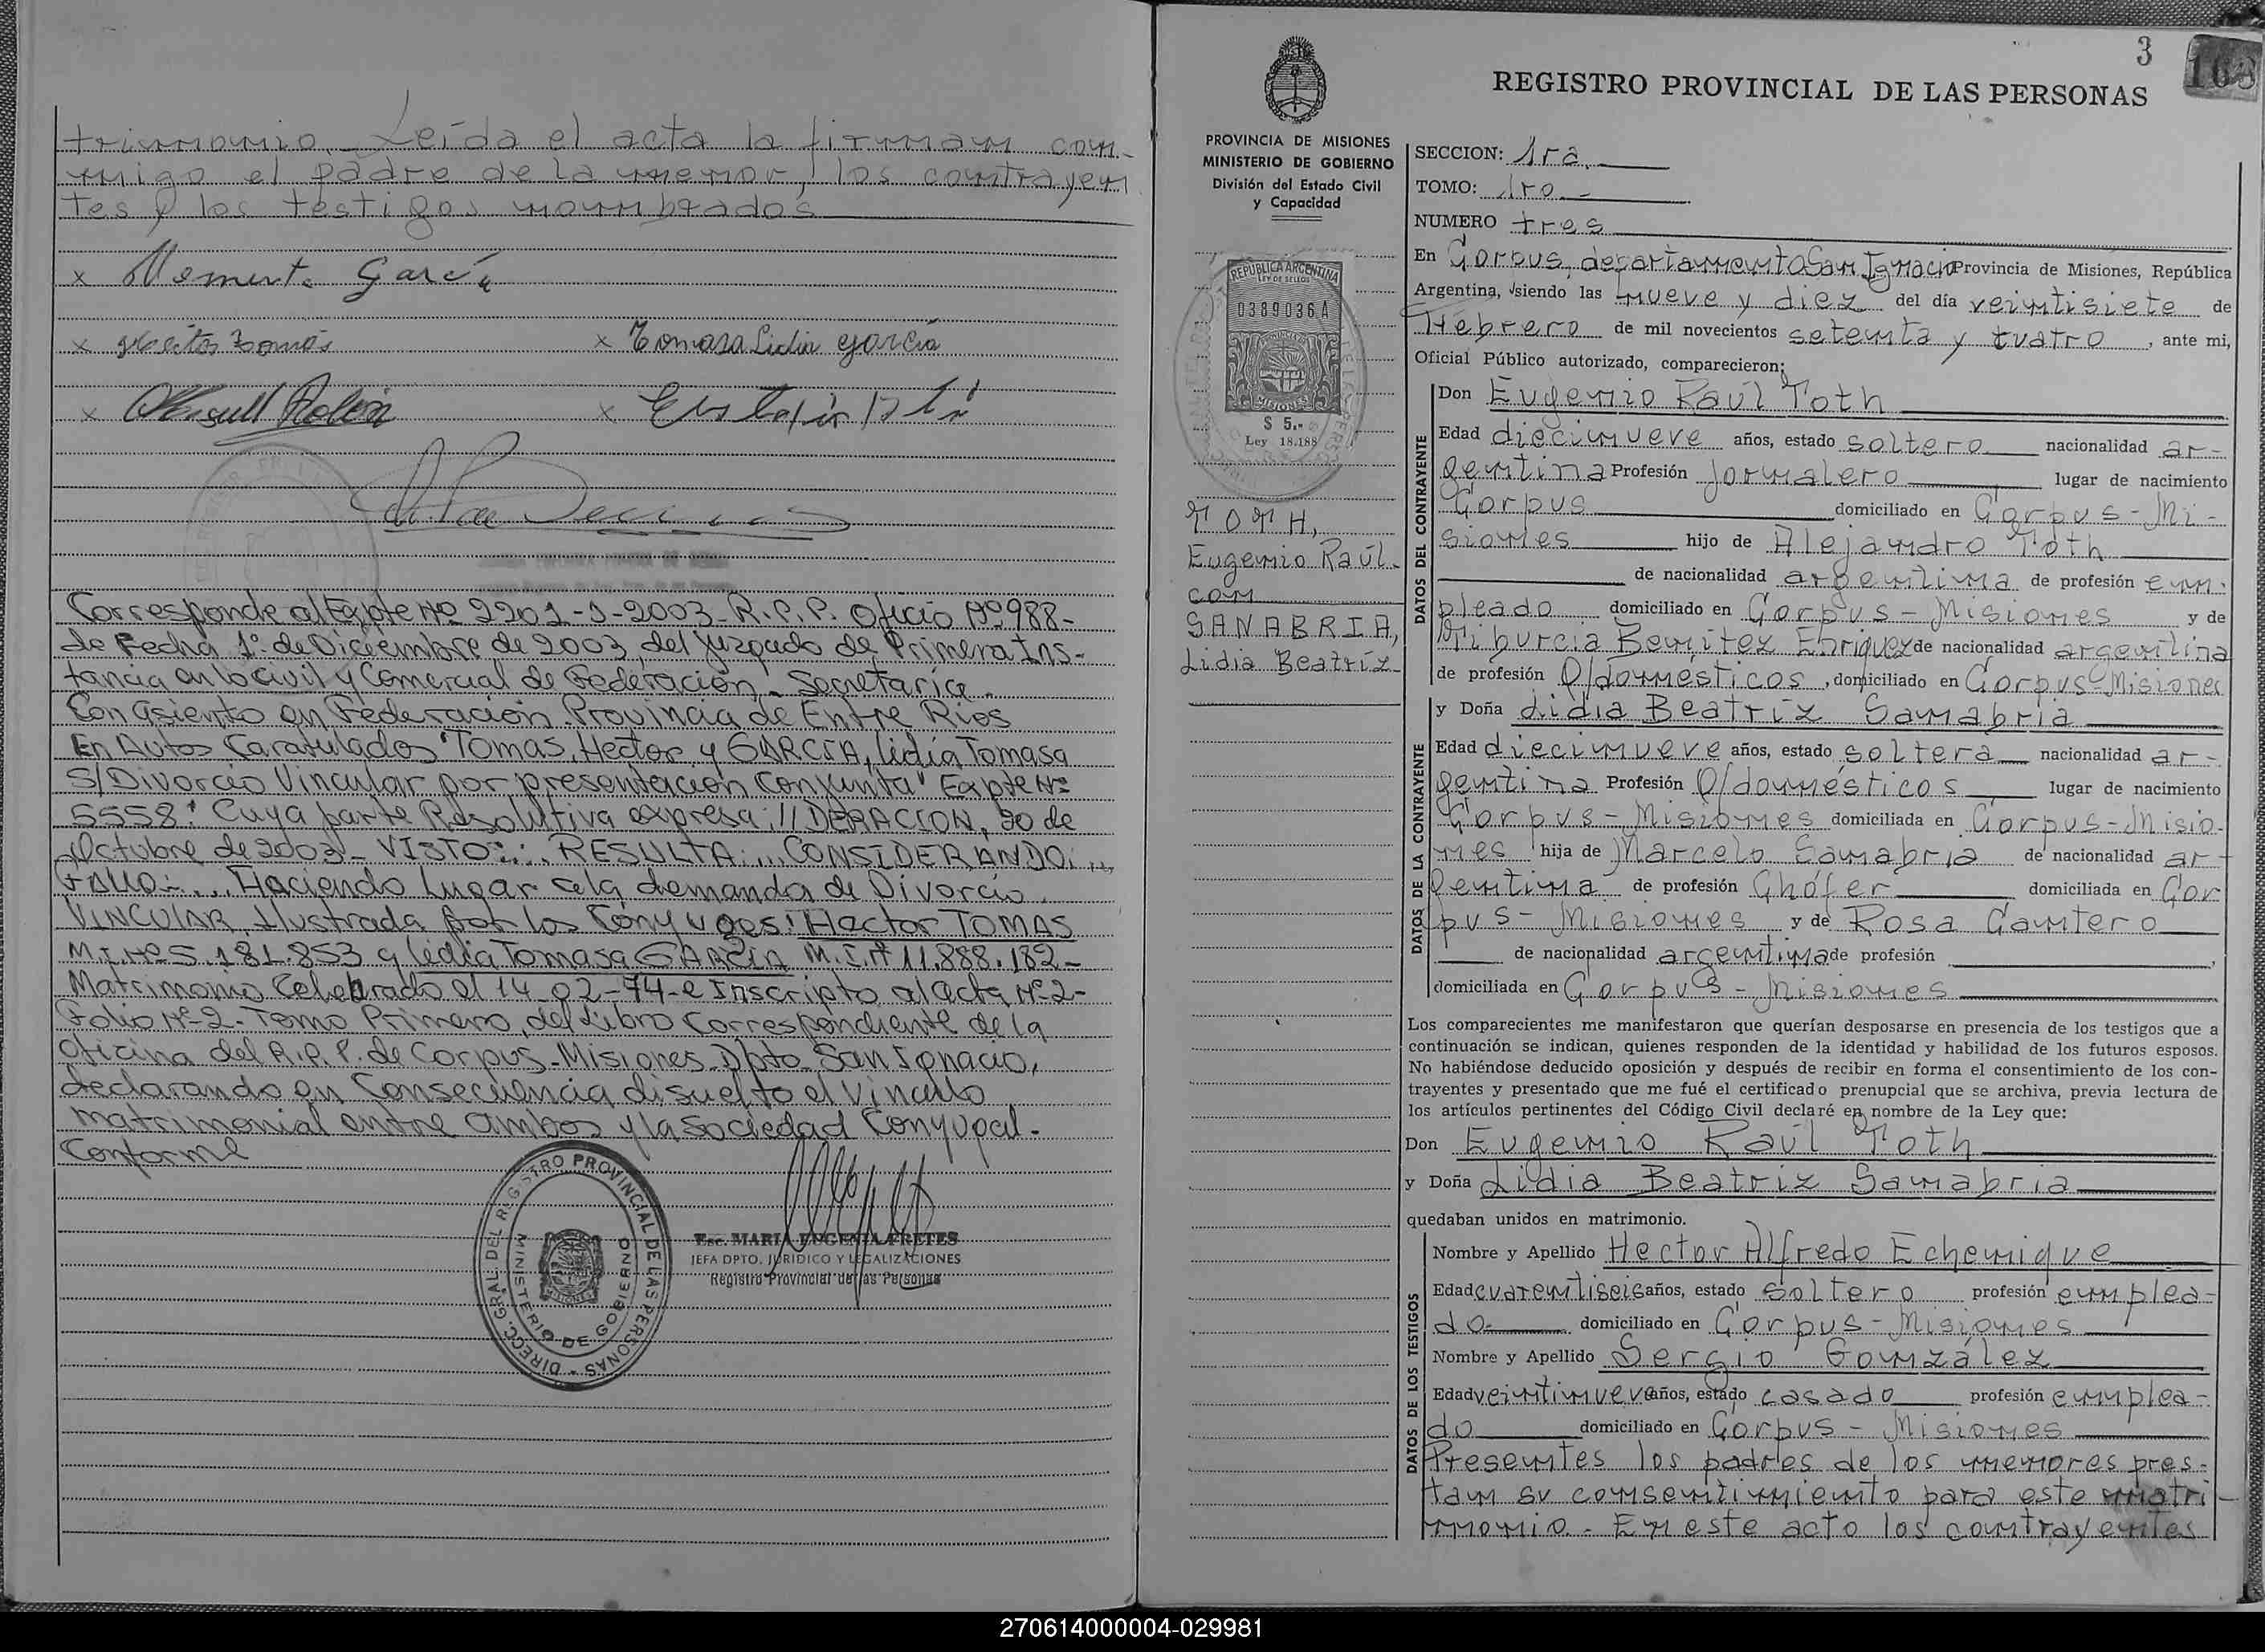 trimonio.- Leída el acta la firman con-
migo el padre de la menor, los contrayen
tes y los testigos nombrados
x García
x Tomás x Tomasa Lidia García
x x
Corresponde al Expte Nº 2201-J-2003- R.P.P. Oficio Nº 988-
de Fecha 1º de Diciembre de 2003, del Juzgado de Primera Ins-
tancia en lo Civil y Comercial de Federación - Secretaría
Con asiento en Federación Provincia de Entre Rios
En Autos Caratulados "TOMAS, Hector y GARCIA, Lidia Tomasa
S/Divorcio Vincular por presentación Conjunta" Expte Nº
5558: Cuya parte Resolutiva expresa: // DERACION, 20 de
Octubre de 2003- VISTO:... RESULTA:... CONSIDERANDO:...
FALLO:... Haciendo Lugar a la demanda de Divorcio
VINCULAR, por los Cónyuges: Hector TOMAS
M.I. Nº 5.181.853 y Lidia Tomasa GARCIA M.I. Nº 11.888.182-
Matrimonio Celebrado el 14-02-74- e Inscripto al Acta Nº 2-
Folio Nº 2- Tomo Primero, del Libro Correspondiente de la
oficina del R.P.P. de Corpus-Misiones Dpto San Ignacio,
declarando en Consecuencia disuelto el Vinculo
matrimonial entre ambos y la Sociedad Conyugal-
Conforme
DIRECC. GRAL. DEL REGISTRO PROVINCIAL DE LAS PERSONAS
MINISTERIO DE GOBIERNO
MISIONES
Esc. MARIA EUGENIA FRETES
JEFA DPTO. JURIDICO Y LEGALIZACIONES
Registro Provincial de las Personas
3
REGISTRO PROVINCIAL DE LAS PERSONAS
PROVINCIA DE MISIONES
MINISTERIO DE GOBIERNO
División del Estado Civil
y Capacidad
REPUBLICA ARGENTINA
LEY DE SELLOS
0389036 A
MISIONES
$ 5.-
Ley 18.188
TOTH,
Eugenio Raúl-
con
SANABRIA,
Lidia Beatríz-
SECCION: 1ra.
TOMO: 1ro.-
NUMERO tres
En Corpus, departamento San Ignacio Provincia de Misiones, República
Argentina, siendo las nueve y diez del día veintisiete de
Febrero de mil novecientos setenta y cuatro, ante mi,
Oficial Público autorizado, comparecieron:
DATOS DEL CONTRAYENTE
Don Eugenio Raúl Toth
Edad diecinueve años, estado soltero nacionalidad ar-
gentina Profesión Jornalero lugar de nacimiento
Corpus domiciliado en Corpus-Mi-
siones hijo de Alejandro Toth
de nacionalidad argentina de profesión em-
pleado domiciliado en Corpus-Misiones y de
Tiburcia Benítez Enriquez de nacionalidad argentina
de profesión Q/domésticos, domiciliado en Corpus-Misiones
DATOS DE LA CONTRAYENTE
y Doña Lidia Beatríz Sanabria
Edad diecinueve años, estado soltera nacionalidad ar-
gentina Profesión Q/domésticos lugar de nacimiento
Corpus-Misiones domiciliada en Corpus-Misio-
nes hija de Marcelo Sanabria de nacionalidad ar-
gentina de profesión Chófer domiciliada en Cor
pus-Misiones y de Rosa Cantero
de nacionalidad argentina de profesión
domiciliada en Corpus-Misiones
Los comparecientes me manifestaron que querían desposarse en presencia de los testigos que a
continuación se indican, quienes responden de la identidad y habilidad de los futuros esposos.
No habiéndose deducido oposición y después de recibir en forma el consentimiento de los con-
trayentes y presentado que me fué el certificado prenupcial que se archiva, previa lectura de
los artículos pertinentes del Código Civil declaré en nombre de la Ley que:
Don Eugenio Raúl Toth
y Doña Lidia Beatriz Sanabria
quedaban unidos en matrimonio.
DATOS DE LOS TESTIGOS
Nombre y Apellido Hector Alfredo Echenique
Edad cuarentiseis años, estado soltero profesión emplea-
do- domiciliado en Corpus-Misiones
Nombre y Apellido Sergio González
Edad veintinueve años, estado casado profesión emplea-
do domiciliado en Corpus-Misiones
Presentes los padres de los menores pres-
tan su consentimiento para este matri-
monio.- En este acto los contrayentes
270614000004-029981